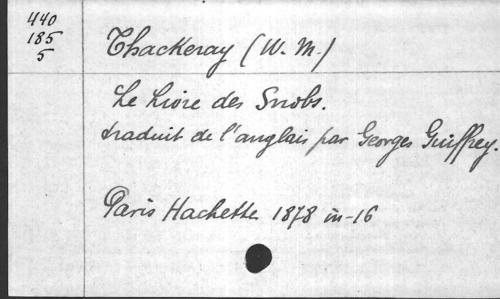 440
185
5
Thackeray (W. M.)
Le Livre des Snobs.
traduit de l'anglais par Georges Guiffrey.
Paris Hachette 1878 in-16